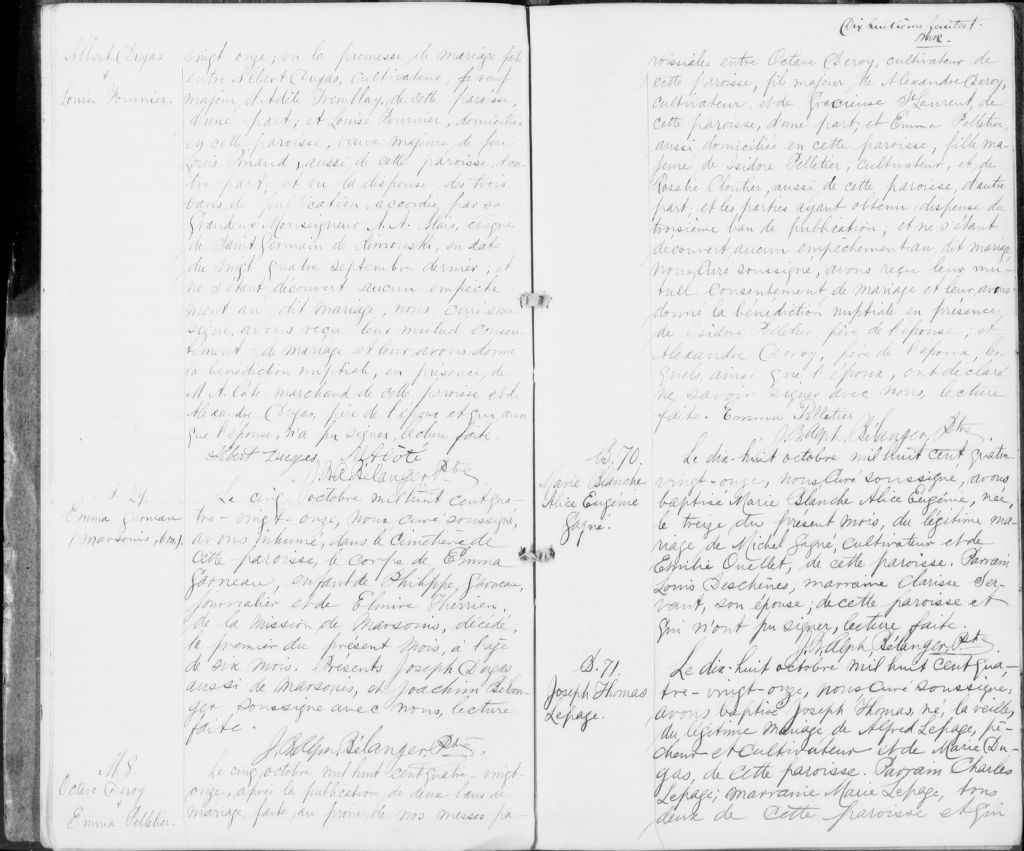 Albert Dugas
+
Louise Fournier.
vingt onze; vu la promesse de mariage faite
entre Albert Dugas, cultivateur, fils
majeur d'Adèle Tremblay, de cette paroisse,
d'une part; et Louise Fournier, domiciliée
en cette paroisse, veuve majeure de feu
Louis Pinard, aussi de cette paroisse, d'au-
tre part; et vu la dispense des trois
bans de publication, accordée par sa
Grandeur Monseigneur A. A. Blais, évêque
de Saint Germain de Rimouski, en date
du vingt quatre septembre dernier; et
ne s'étant découvert aucun empêche-
ment au dit mariage, nous, curé sous-
signé, avons reçu leur mutuel consen-
tement de mariage et leur avons donné
la bénédiction nuptiale, en présence, de
M. A. Côté, marchand de cette paroisse et de
Alexandre Dugas, père de l'époux et qui, ainsi
que l'épouse, n'a pu signer, lecture faite.
Albert Dugas M A Côté
J. R. A. Bélanger Ptre
S. 29.
Emma Garneau
(Marsouis, 6m).
Le cinq octobre mil huit cent qua-
tre-vingt-onze, nous curé soussigné,
avons inhumé, dans le cimetière de
cette paroisse, le corps de Emma
Garneau, enfant de Philippe Garneau,
journalier et de Elmire Therrien,
de la mission de Marsouis, décédé,
le premier du présent mois, à l'age
de six mois. Présents Joseph Dugas
aussi de Marsouis, et Joachim Bélan-
ger soussigné avec nous, lecture
faite.
J. R. Alph Bélanger Ptre.
M 8.
Octave Deroy
+
Emma Pelletier.
Le cinq octobre mil huit cent quatre-vingt-
onze, après la publication de deux bans de
mariage, faite au prone, de nos messes pa-
Dix huitième feuillet.
roissiales entre Octave Deroy, cultivateur, de
cette paroisse, fils majeur de Alexandre Deroy,
cultivateur, et de Gracieuse St Laurent, de
cette paroisse, d'une part; et Emma Pelletier,
aussi domiciliée en cette paroisse, fille ma-
jeure de Isidore Pelletier, cultivateur, et de
Rosalie Cloutier, aussi de cette paroisse, d'autre
part; et les parties ayant obtenu dispense du
troisième ban de publication; et ne s'étant
découvert aucun empêchement au dit mariage,
nous, Curé soussigné, avons reçu leur mu-
tuel consentement de mariage et leur avons
donné la bénédiction nuptiale en présence
de Isidore Pelletier, père de l'épouse; et
Alexandre Deroy, père de l'époux, les-
quels, ainsi que l'époux, ont déclaré
ne savoir signer avec nous, lecture
faite. Emma Pelletier
J. R. Alph Bélanger Ptre
B. 70.
Marie Blanche
Alice Eugénie
Gagné.
Le dix-huit octobre mil huit cent quatre-
vingt-onze, nous Curé soussigné, avons
baptisé Marie Blanche Alice Eugénie, née,
le treize du présent mois, du légitime ma-
riage, de Michel Gagné, cultivateur et de
Emilie Ouellet, de cette paroisse. Parrain
Louis Deschênes, marraine Clarisse Ser-
vant, son épouse; de cette paroisse et
qui n'ont pu signer, lecture faite.
J. R. Alph Bélanger Ptre.
B. 71.
Joseph Thomas
Lepage.
Le dix-huit octobre mil huit cent qua-
tre-vingt-onze, nous curé soussigné,
avons baptisé Joseph Thomas, né, la veille,
du légitime mariage de Alfred Lepage, pê-
cheur et cultivateur et de Marie Du-
gas, de cette paroisse. Parrain Charles
Lepage; marraine Marie Lepage, tous
deux de cette paroisse et qui